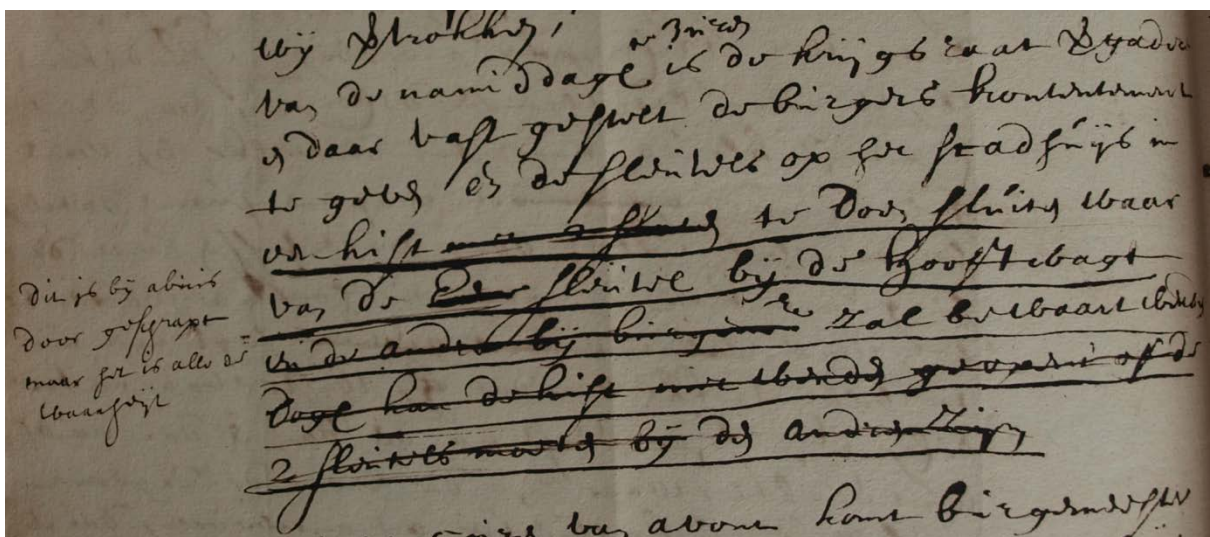 wij vertrokken,
te 3 uiren
van de namiddage is de krijgsraat vergadert
en daar vast gestelt de burgers kontentement
te geven en de sleutels op het stadhuijs in
een kist met 2 sloten te doen sluiten waar
van de Eene sleutel bij de Hooft wagt
en de ander bij burgem re zal bewaart werden
Dage kan de kist niet werden geopent of de
2 sleutels moeten bij den anderen zijn
dit is bij abuis
door geschrapt
maar het is alle de
waarheijt
van avont komt burgemeester